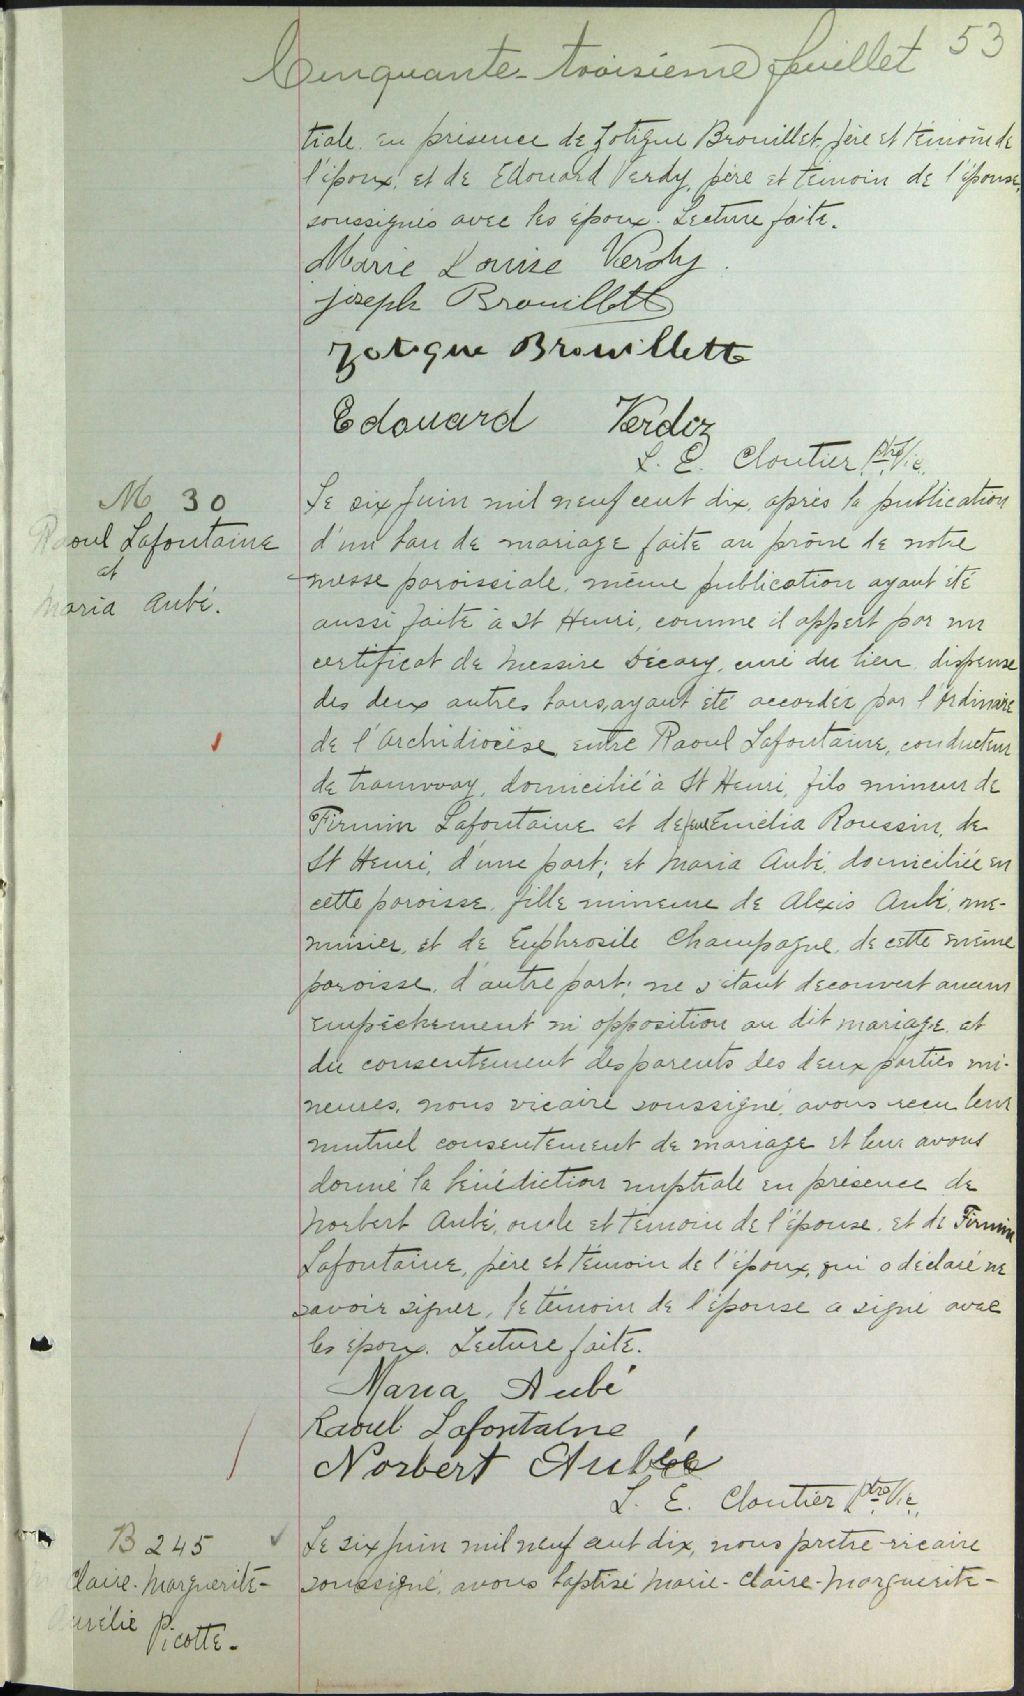 53
Cinquante-troisième feuillet
tiale en présence de Zotique Brouillet, père et témoin de
l'époux, et de Edouard Verdy, père et témoin de l'épouse,
soussignés avec les époux. Lecture faite.
Marie Louise Verdy.
joseph Brouillett
Zotique Brouillette
Edouard Verdiz
L. E. Cloutier, ptre Vic.
M 30
Raoul Lafontaine
et
Maria Aubé.
Le six juin mil neuf cent dix, après la publication
d'un ban de mariage faite au prône de notre
messe paroissiale, même publication ayant été
aussi faite à St Henri, comme il appert par un
certificat de Messire Décary, curé du lieu, dispense
des deux autres bans ayant été accordée par l'Ordinaire
de l'Archidiocèse, entre Raoul Lafontaine, conducteur
de tramway, domicilié à St Henri, fils mineur de
Firmin Lafontaine et de feue Emélia Roussin, de
St Henri, d'une part; et Maria Aubé, domiciliée en
cette paroisse, fille mineure de Alexis Aubé, me-
nuisier, et de Euphrosile Champagne, de cette même
paroisse, d'autre part; ne s'étant découvert aucun
empêchement ni opposition au dit mariage, et
du consentement des parents des deux parties mi-
neures, nous vicaire soussigné, avons reçu leur
mutuel consentement de mariage et leur avons
donné la bénédiction nuptiale en présence de
Norbert Aubé, oncle et témoin de l'épouse, et de Firmin
Lafontaine, père et témoin de l'époux, qui a déclaré ne
savoir signer, le témoin de l'épouse a signé avec
les époux. Lecture faite.
Maria Aubé
Raoul Lafontaine
Norbert Aubée
L. E. Cloutier ptre Vic.
B 245
M Claire-Marguerite-
Aurélie Picotte.
Le six juin mil neuf cent dix, nous prêtre-vicaire
soussigné, avons baptisé Marie-Claire-Marguerite-